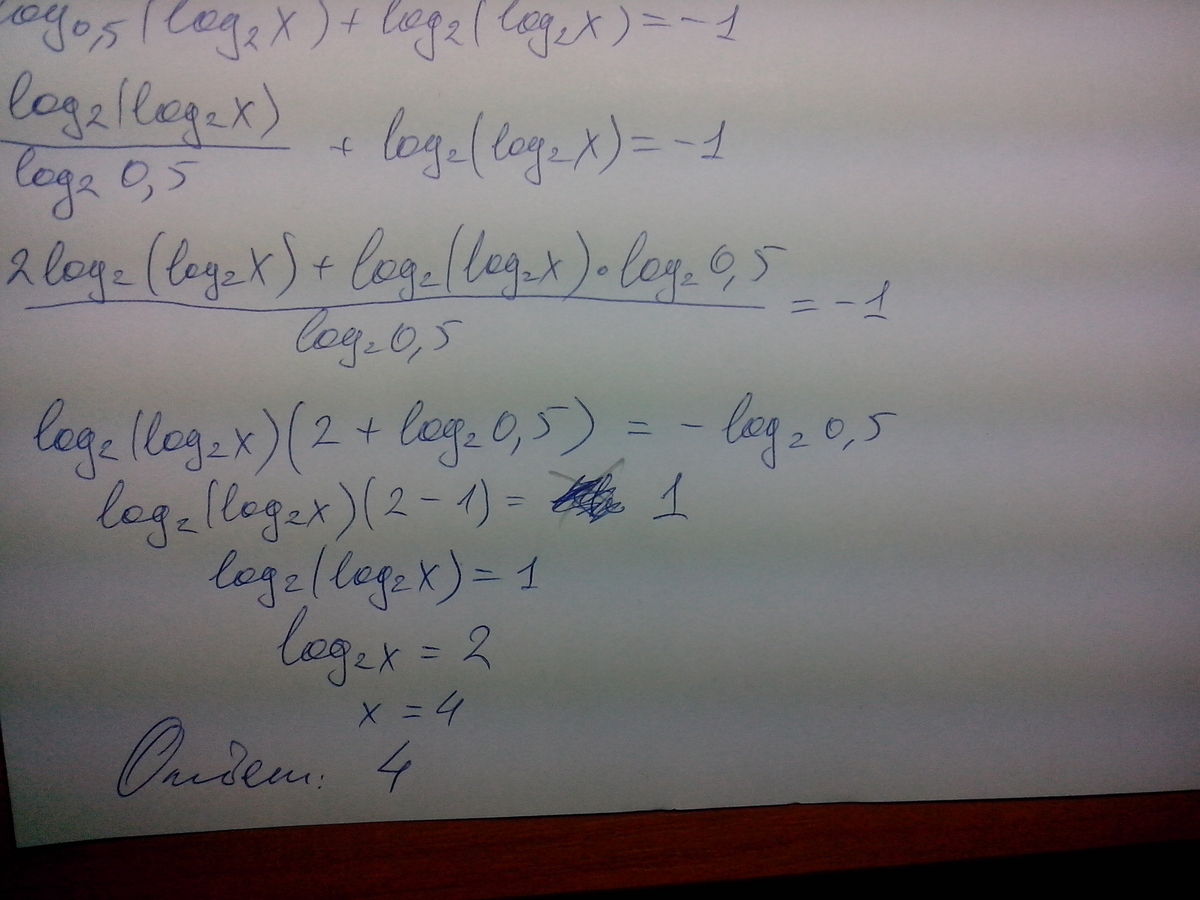 log₀,₅(log₂x)+log₂(log₂x)=-1
log₂(log₂x)/log₂0,5 + log₂(log₂x)=-1
(2log₂(log₂x)+log₂(log₂x)·log₂0,5)/log₂0,5 = -1
log₂(log₂x)(2+log₂0,5) = -log₂0,5
log₂(log₂x)(2-1)= 1
log₂(log₂x)=1
log₂x=2
x=4
Ответ: 4